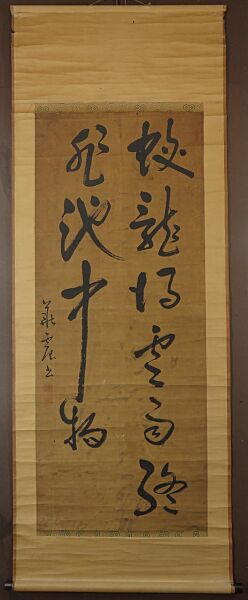 蛟龍得雲雨終
非池中物